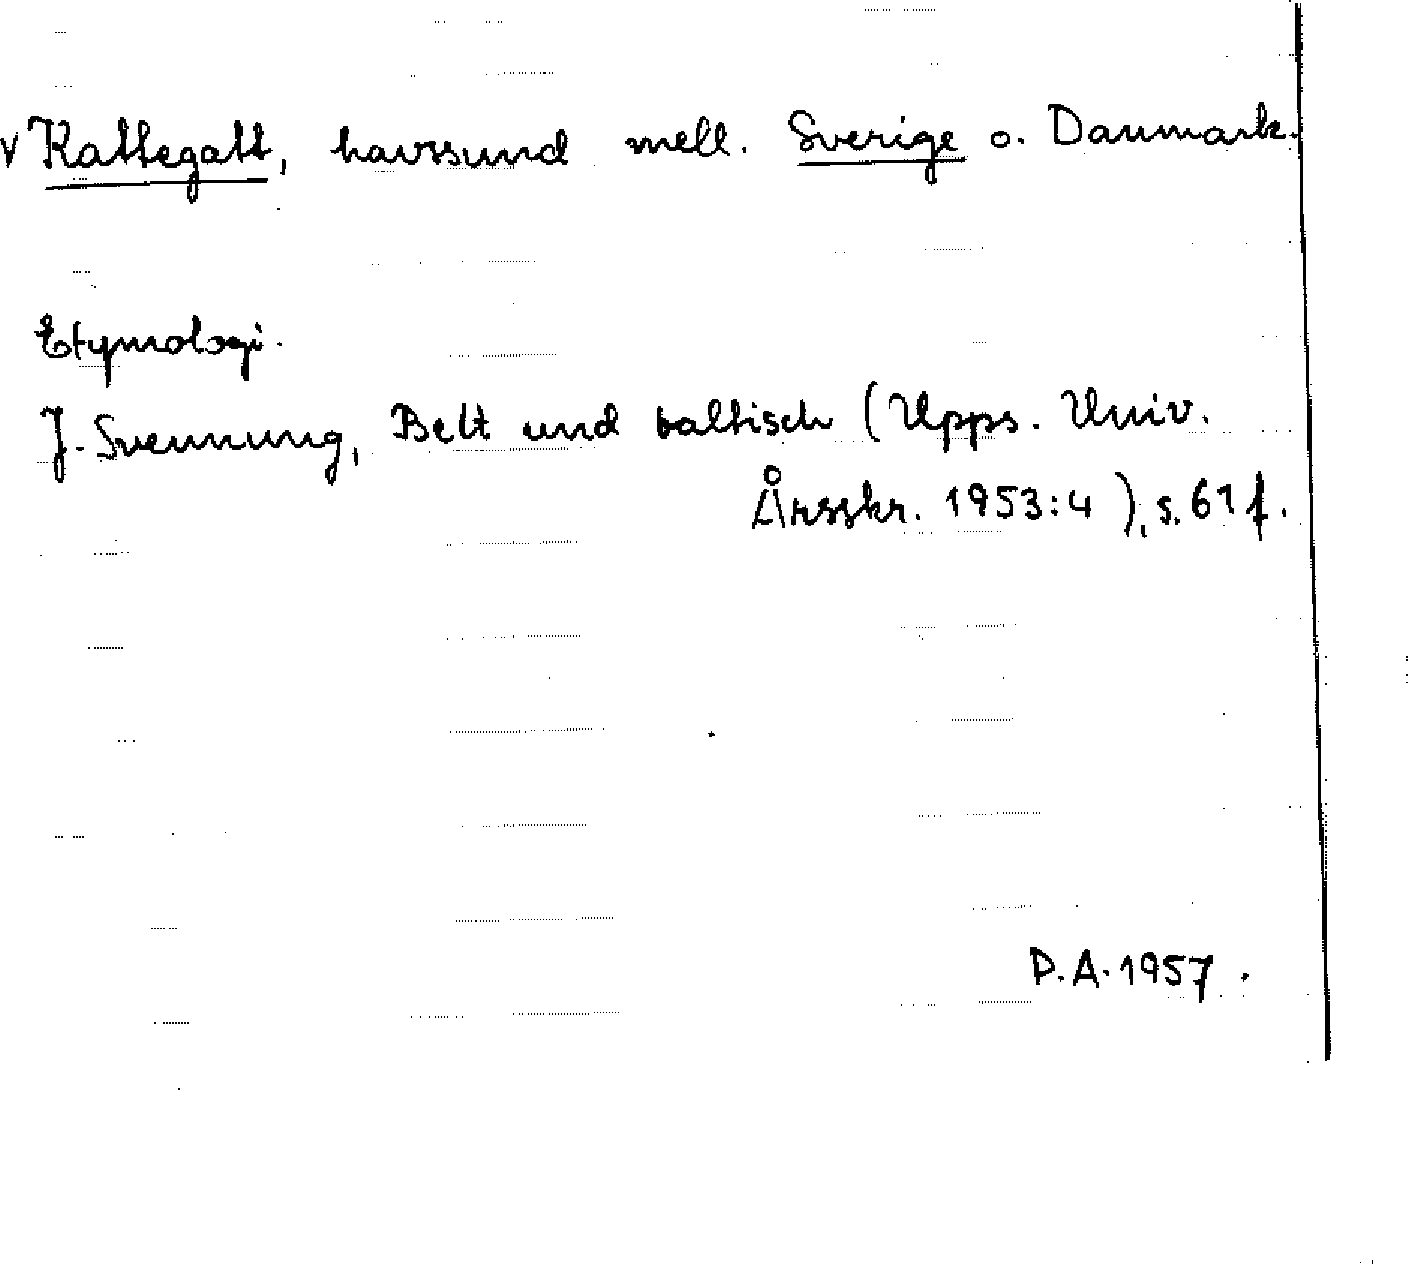 v Kattegatt, havssund mell. Sverige o. Danmark.
Etymologi.
J. Svennung, Belt und baltisch (Upps. Univ.
Årsskr. 1953:4), s. 61 f.
D.A. 1957.